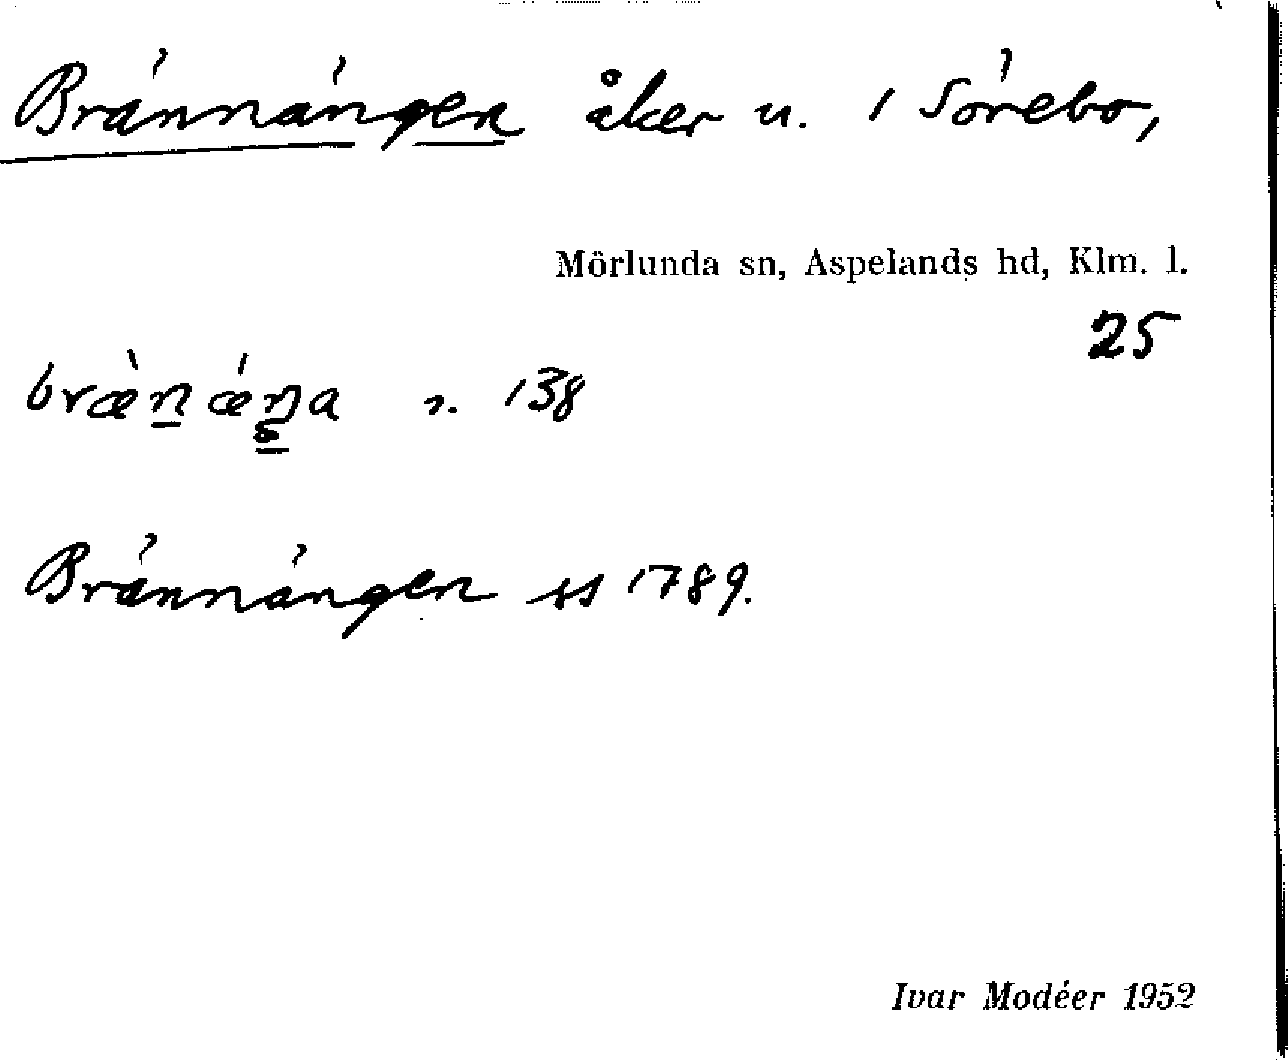 Brännängen åker u. / Sörebo,
Mörlunda sn, Aspelands hd, Klm. l.
25
bræ̀n̲ǽŋa n. 138
Brännängen ss 1789.
Ivar Modéer 1952